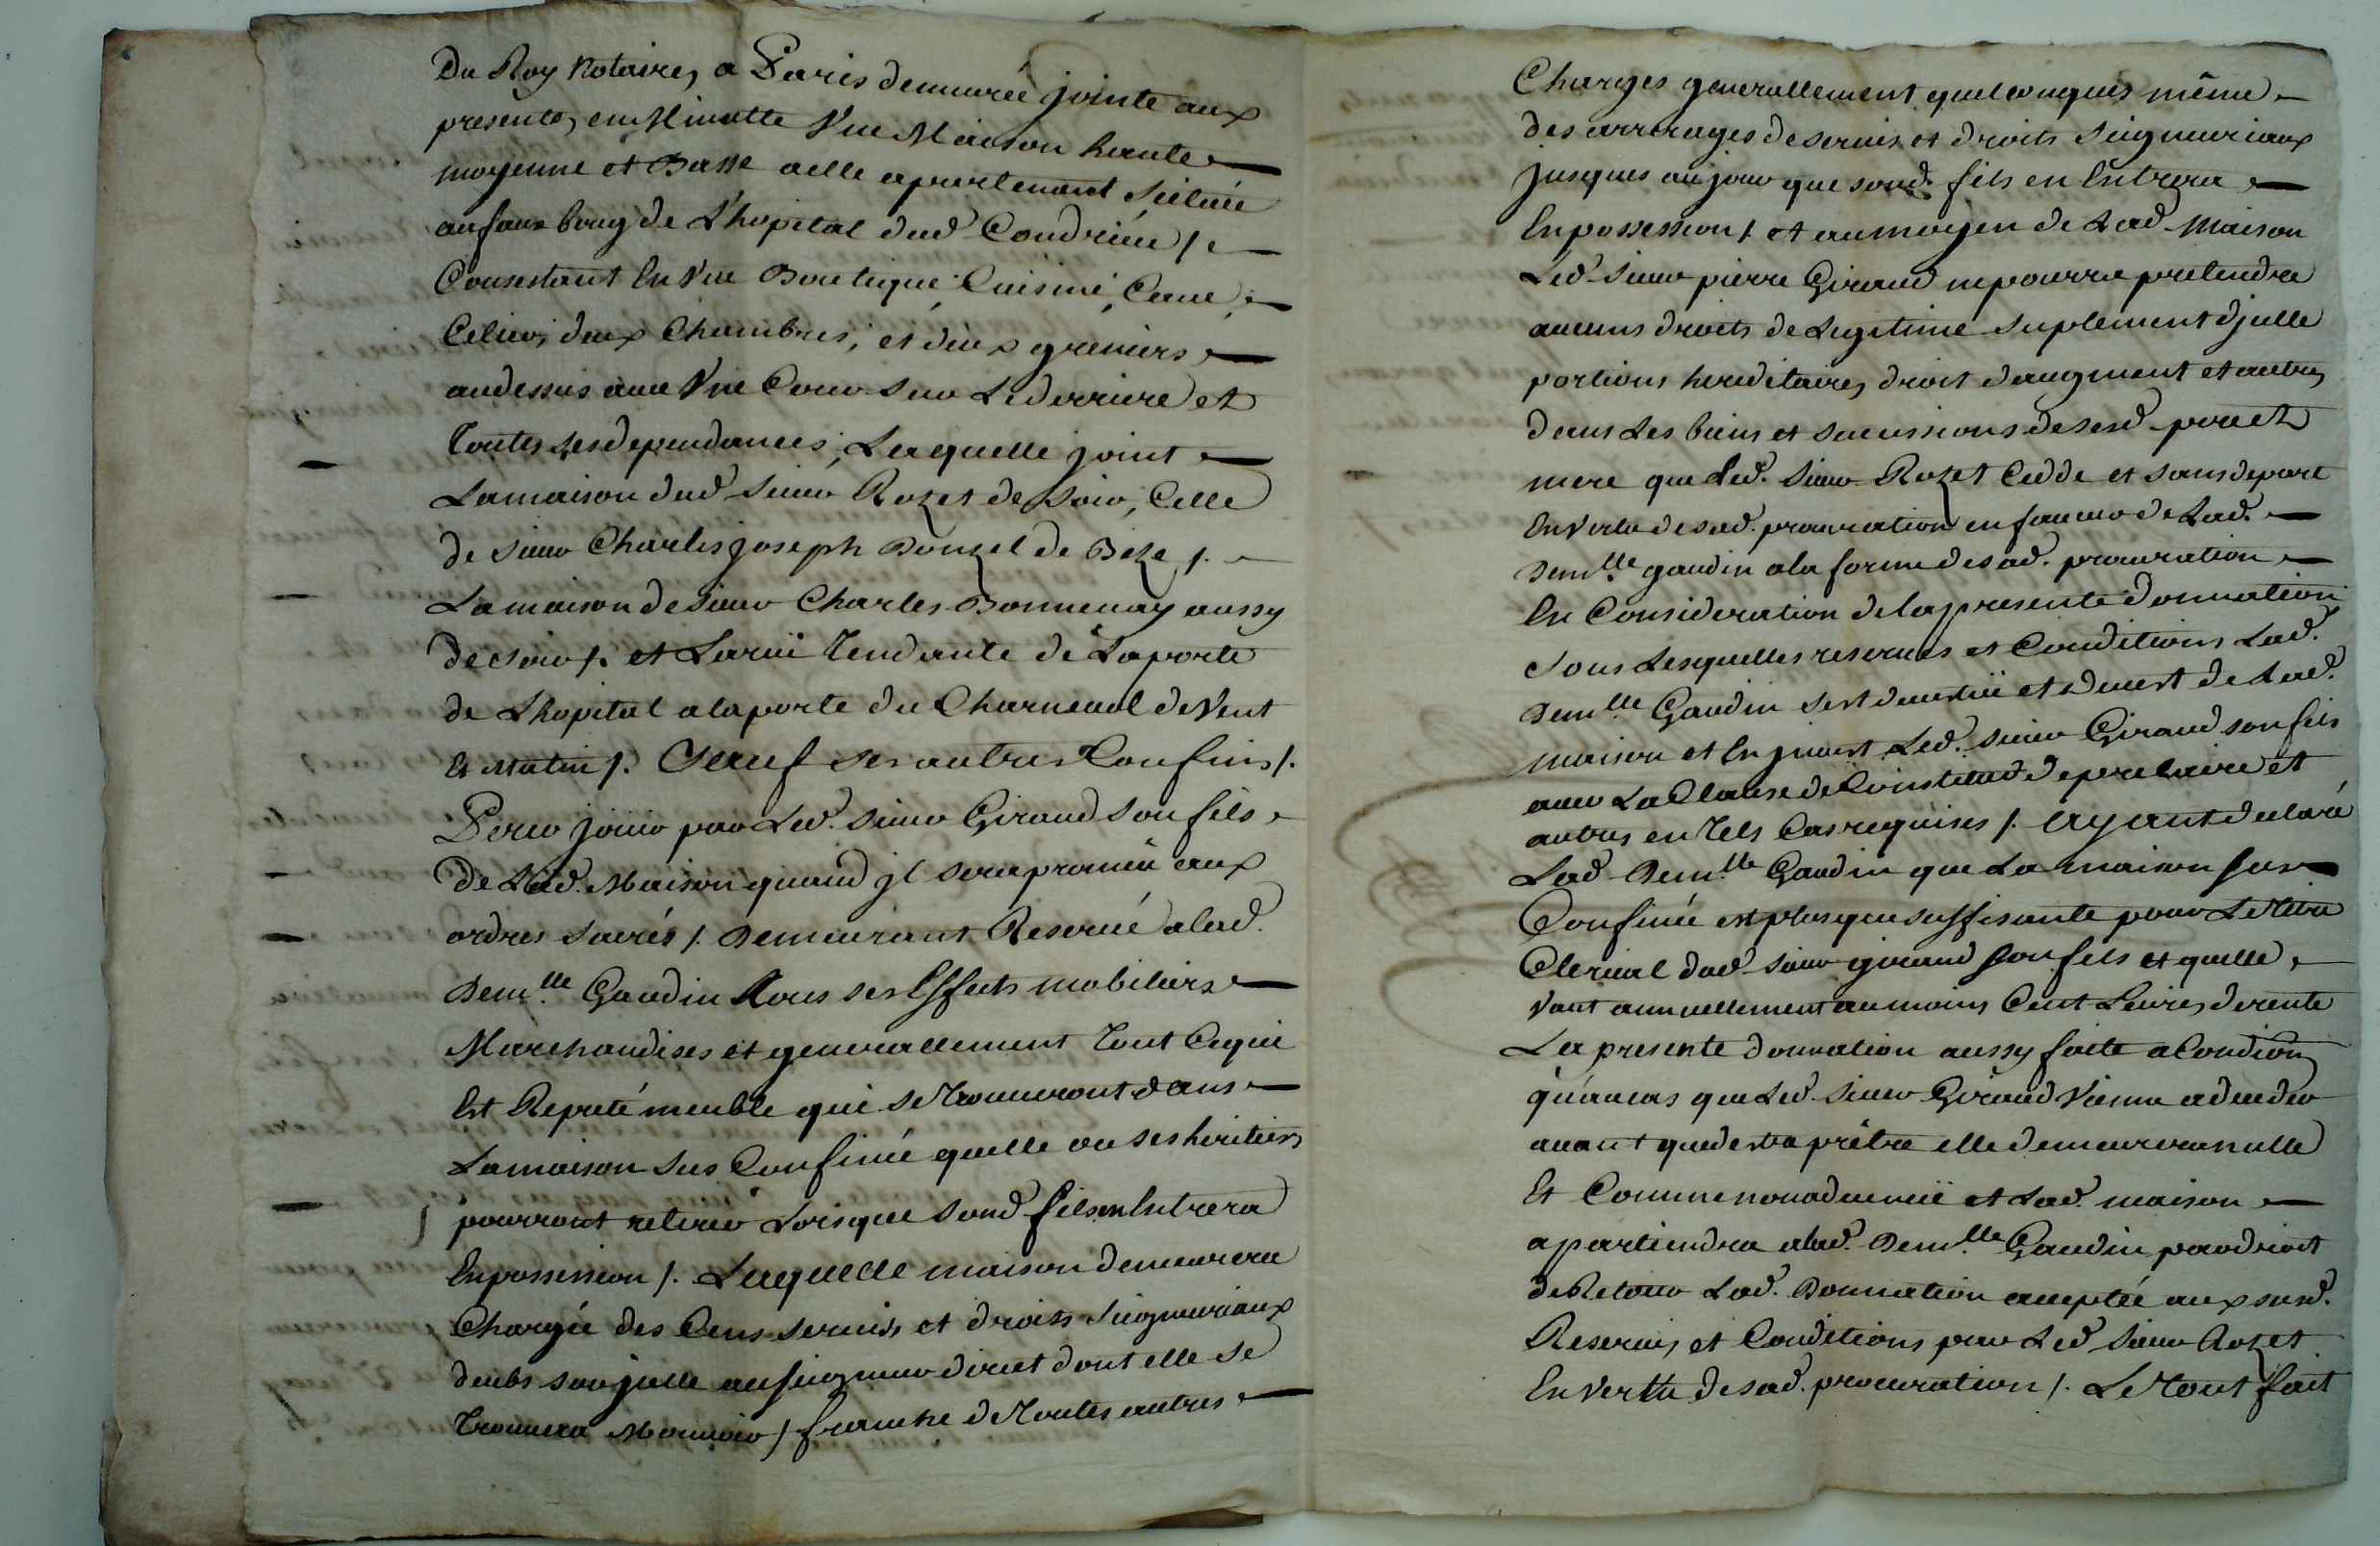 Du Roy Notaires a Paris demeurée jointe aux
presentes en Minutte Vne Maison haute
moyenne et Basse a elle apartenant Scituée
au faux bourg de L'hopital dud Condrieu /.
Consistant En Vne Boutique Cuisine, Caue,
Celier, deux Chambres, et deux greniers
audessus auec Vne Cour Sur Le derriere et
Toutes ses dependances, Laquelle joint
La maison dud Sieur Rozet de Soir, Celle
de Sieur Charles joseph Donzel de Bize /.
La maison de Sieur Charles Bonnenay aussy
de soir /. et La rue Tendante de La porte
de L'hopital a la porte du Charneuol de Vent
Et Matin /. Sauf ses autres Confins /.
Pour jouir par Led. Sieur Giraud Son fils
de Lad. Maison quand jl sera promeu aux
ordres Sacrés /. Demeurant Reserué a lad.
Demlle Gaudin Tous ses Effets mobiliers
Marchandises et generallement Tout Ce qui
Est Reputé meuble qui se Trouueront dans
La maison Sus Confinée quelle ou ses heritiers
pourront retirer Lorsque Sond fils en Entrera
En possession /. Laquelle maison demeurera
Chargée des Cens Seruis et droits Seigneuriaux
deubs sur jcelle au seigneur direct dont elle se
Trouuera Mouuoir / franche de Toutes autres
Charges generallement quelconques même
des arrerages de seruis et droits Seigneuriaux
jusques au jour que sond. fils en Entrera
En possession /. et au moyen de Lad. Maison
Led. Sieur pierre Giraud ne pourra pretendre
aucuns droits de Legitime Suplement d'jcelle
portions hereditaires droit daugment et autres
dans Les biens et Successions de sesd. pere et
mere que Led. Sieur Rozet Cedde et sans depart
En Vertu de sad. procuration en faueur de Lad.
Demlle gaudin a la forme de sad. procuration
En Consideration de la presente donnation
Sous Lesquelles reserues et Conditions Lad.
Demlle Gaudin sest deuestüe et deuest de Lad.
maison et En jnuest Led. Sieur Giraud son fils
auec La Clause de Constitut de precaire et
autres en Tels Cas requises /. Ayant declaré
Lad Demlle Gaudin que La maison sus
Confinée est plus que suffisante pour Le Titre
Clerical dud Sieur giraud son fils et quelle
Vaut annuellement au moins Cent Liures de rente
La presente donnation aussy faite a Condion
qu'au cas que Led. Sieur Giraud Vienne a deceder
auant que destre prêtre elle demeurera nulle
Et Comme non aduenüe et Lad. maison
apartiendra a lad. Demlle Gaudin par droit
de Retour Lad. Donnation acceptée aux susd.
Reserues et Conditions par Led Sieur Rozet
En Vertu de sad. procuration /. Le Tout fait